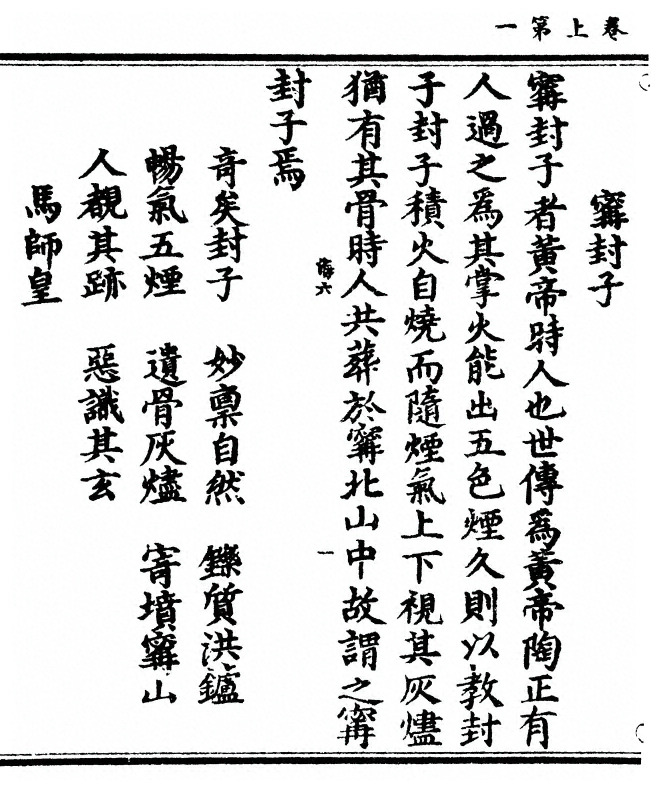 卷上第一
寗封子
寗封子者黃帝時人也世傳爲黃帝陶正有
人過之爲其掌火能出五色煙久則以教封
子封子積火自燒而隨煙氣上下視其灰燼
猶有其骨時人共葬於寗北山中故謂之寗
海六
一
封子焉
奇矣封子 妙稟自然 鑠質洪鑪
暢氣五煙 遺骨灰燼 寄墳寗山
人覩其跡 惡識其玄
馬師皇